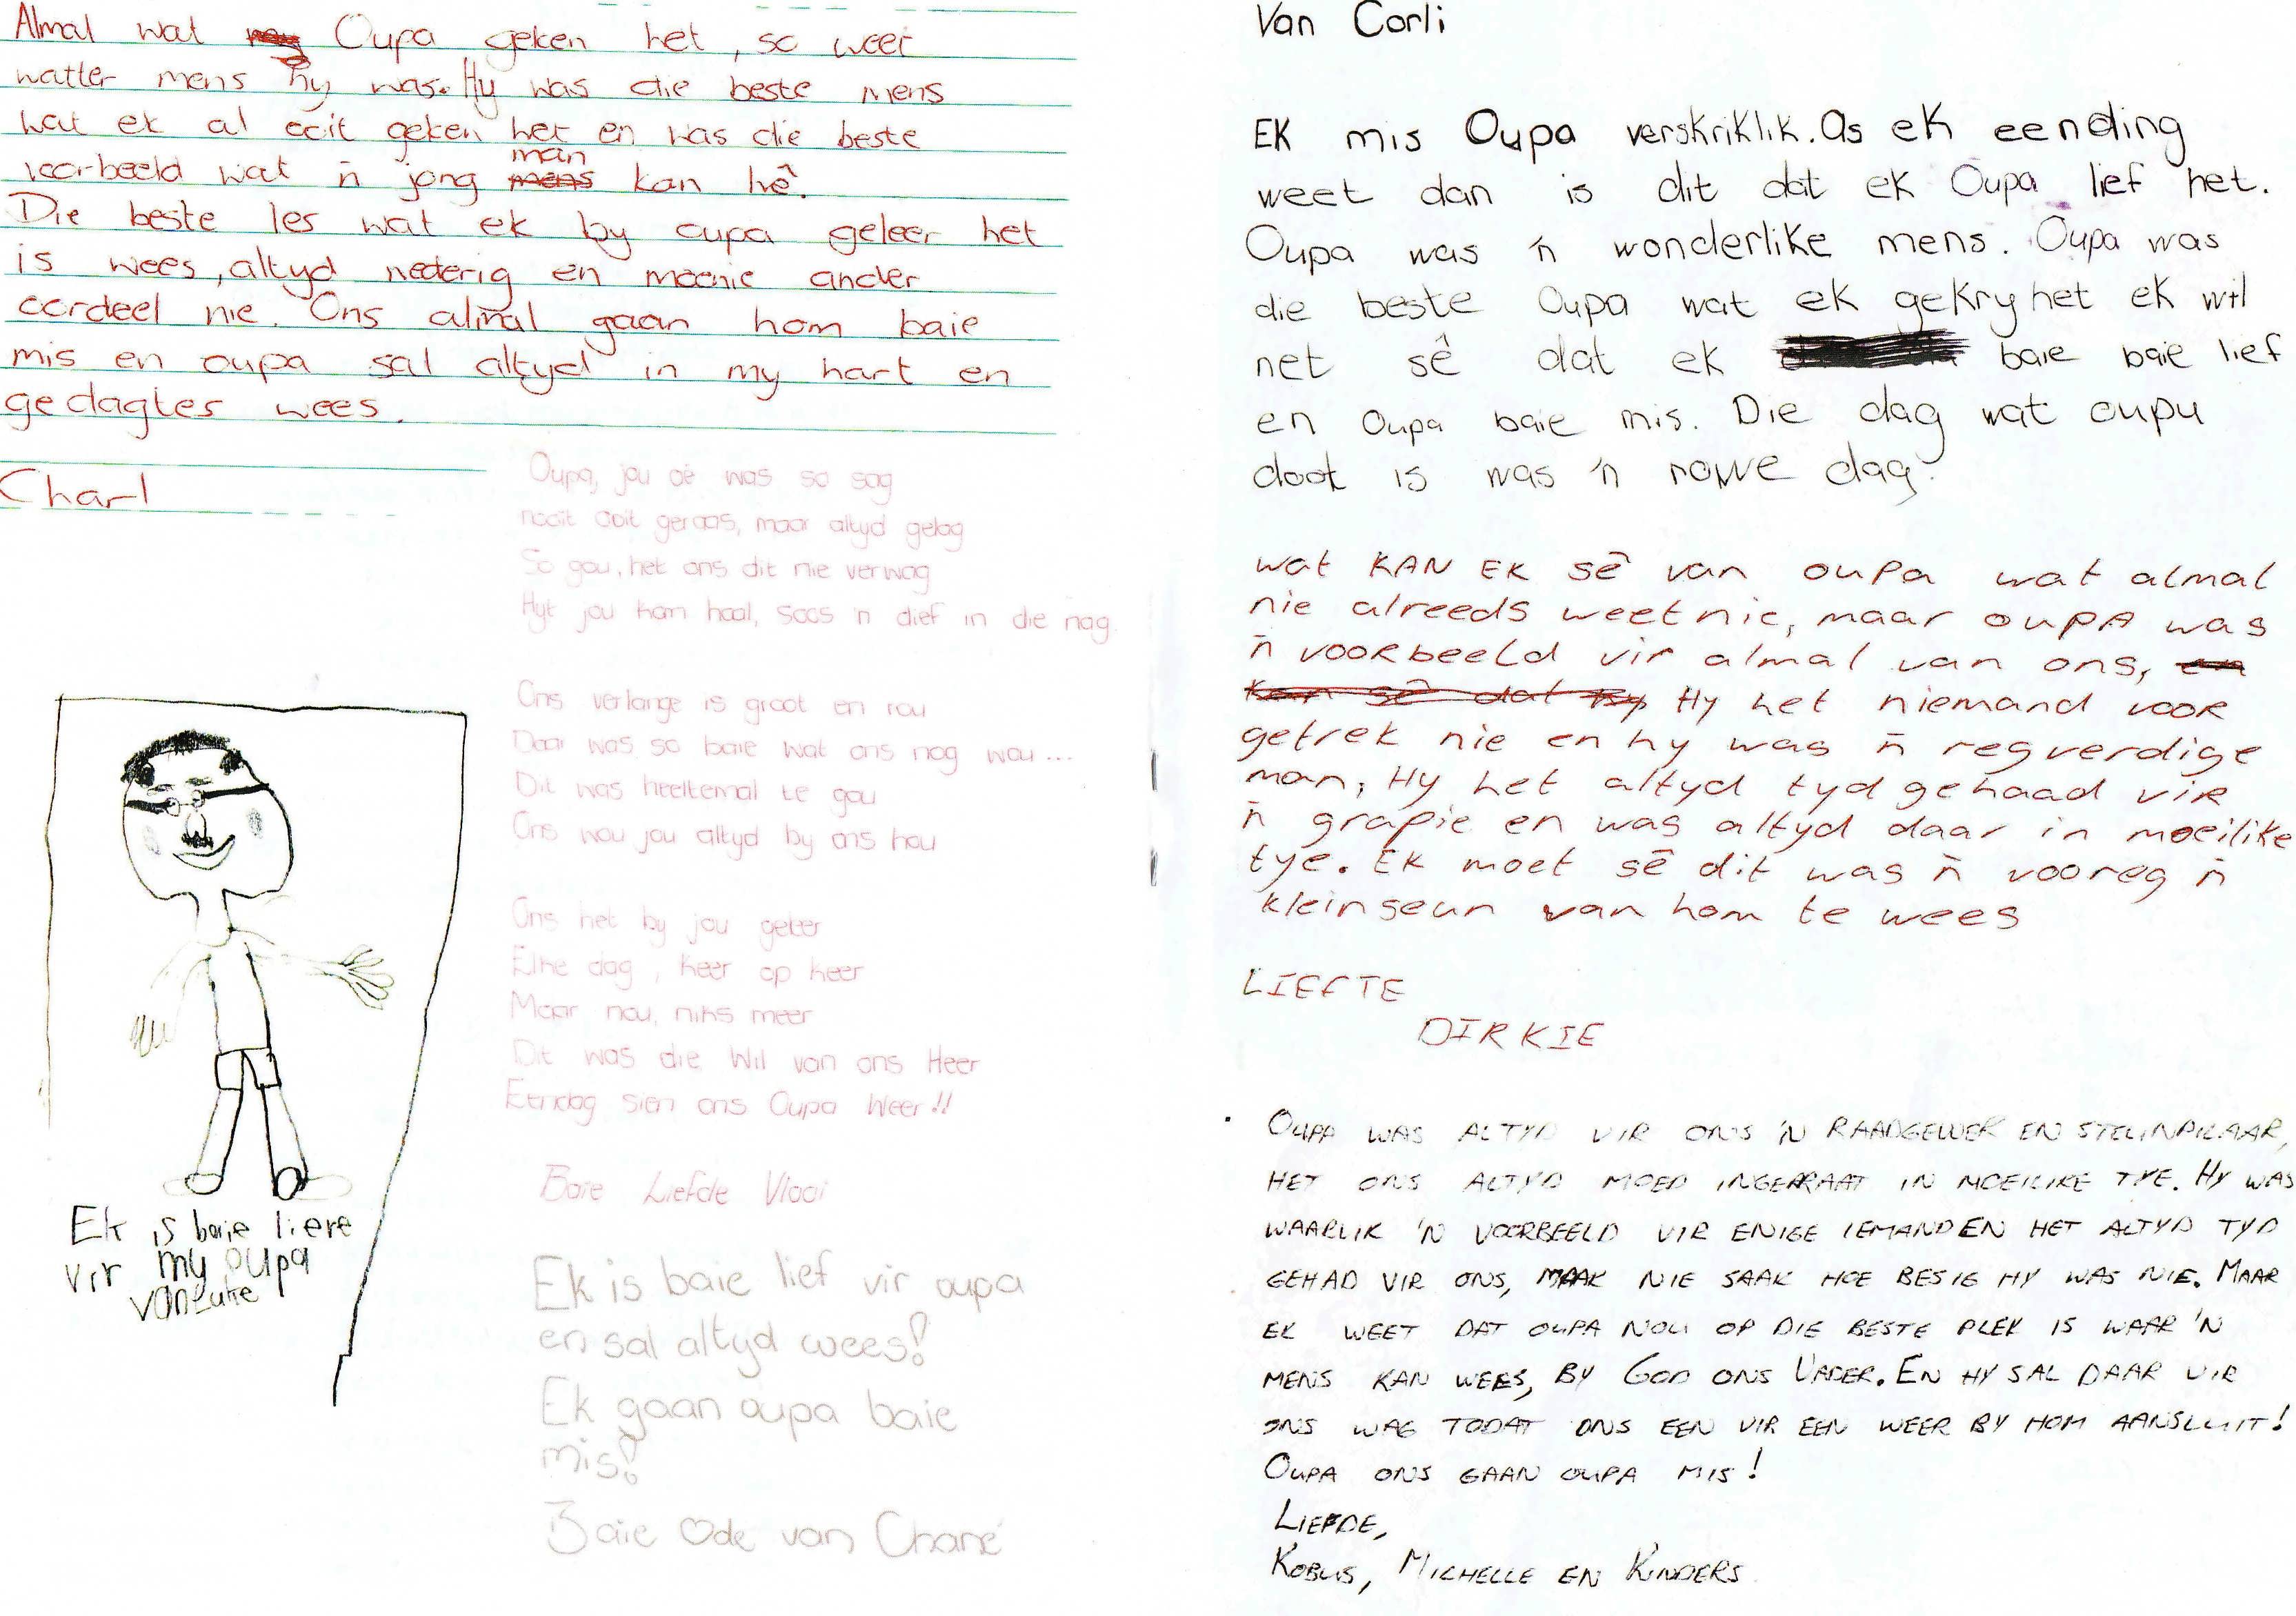 Almal wat Oupa geken het, so weet
watter mens hy was. Hy was die beste mens
wat ek al ooit geken het en was die beste
voorbeeld wat ñ jong man kan hê.
Die beste les wat ek by oupa geleer het
is wees, altyd nederig en moenie ander
oordeel nie. Ons almal gaan hom baie
mis en oupa sal altyd in my hart en
gedagtes wees.
Charl
Oupa, jou oë was so sag
nooit ooit geraas, maar altyd gelag
So gou, het ons dit nie verwag
Hy't jou kom haal, soos 'n dief in die nag.
Ons verlange is groot en rou
Daar was so baie wat ons nog wou...
Dit was heeltemal te gou
Ons wou jou altyd by ons hou
Ons het by jou geleer
Elke dag, keer op keer
Maar nou, niks meer
Dit was die Wil van ons Heer
Eendag sien ons Oupa Weer!!
Baie Liefde Vlooi
Ek is baie liere
vir my oupa
van Luke
Ek is baie lief vir oupa
en sal altyd wees!
Ek gaan oupa baie
mis!
Baie ♡de van Chané
Van Corli
EK mis Oupa verskriklik. As ek eending
weet dan is dit dat ek Oupa lief het.
Oupa was 'n wonderlike mens. Oupa was
die beste Oupa wat ek gekry het ek wil
net sê dat ek baie baie lief
en Oupa baie mis. Die dag wat oupu
doot is was 'n rowwe dag.
wat KAN EK sê van oupa wat almal
nie alreeds weet nie, maar oupA was
ñ voorbeeld vir almal van ons, en
kan sê dat hy Hy het niemand voor
getrek nie en hy was ñ regverdige
man, Hy het altyd tyd gehaad vir
ñ grapie en was altyd daar in moeilike
tye. EK moet sê dit was ñ vooreg ñ
kleinseun van hom te wees
LIEFTE
DIRKIE
OUPA WAS ALTYD VIR ONS 'N RAADGEWER EN STEUNPILAAR,
HET ONS ALTYD MOED INGEPRAAT IN MOEILIKE TYE. HY WAS
WAARLIK 'N VOORBEELD VIR ENIGE IEMAND EN HET ALTYD TYD
GEHAD VIR ONS, MAAK NIE SAAK HOE BESIG HY WAS NIE. MAAR
EK WEET DAT OUPA NOU OP DIE BESTE PLEK IS WAAR 'N
MENS KAN WEES, BY GOD ONS VADER. EN HY SAL DAAR VIR
ONS WAG TODAT ONS EEN VIR EEN WEER BY HOM AANSLUIT!
OUPA ONS GAAN OUPA MIS!
LIEFDE,
KOBUS, MICHELLE EN KINDERS